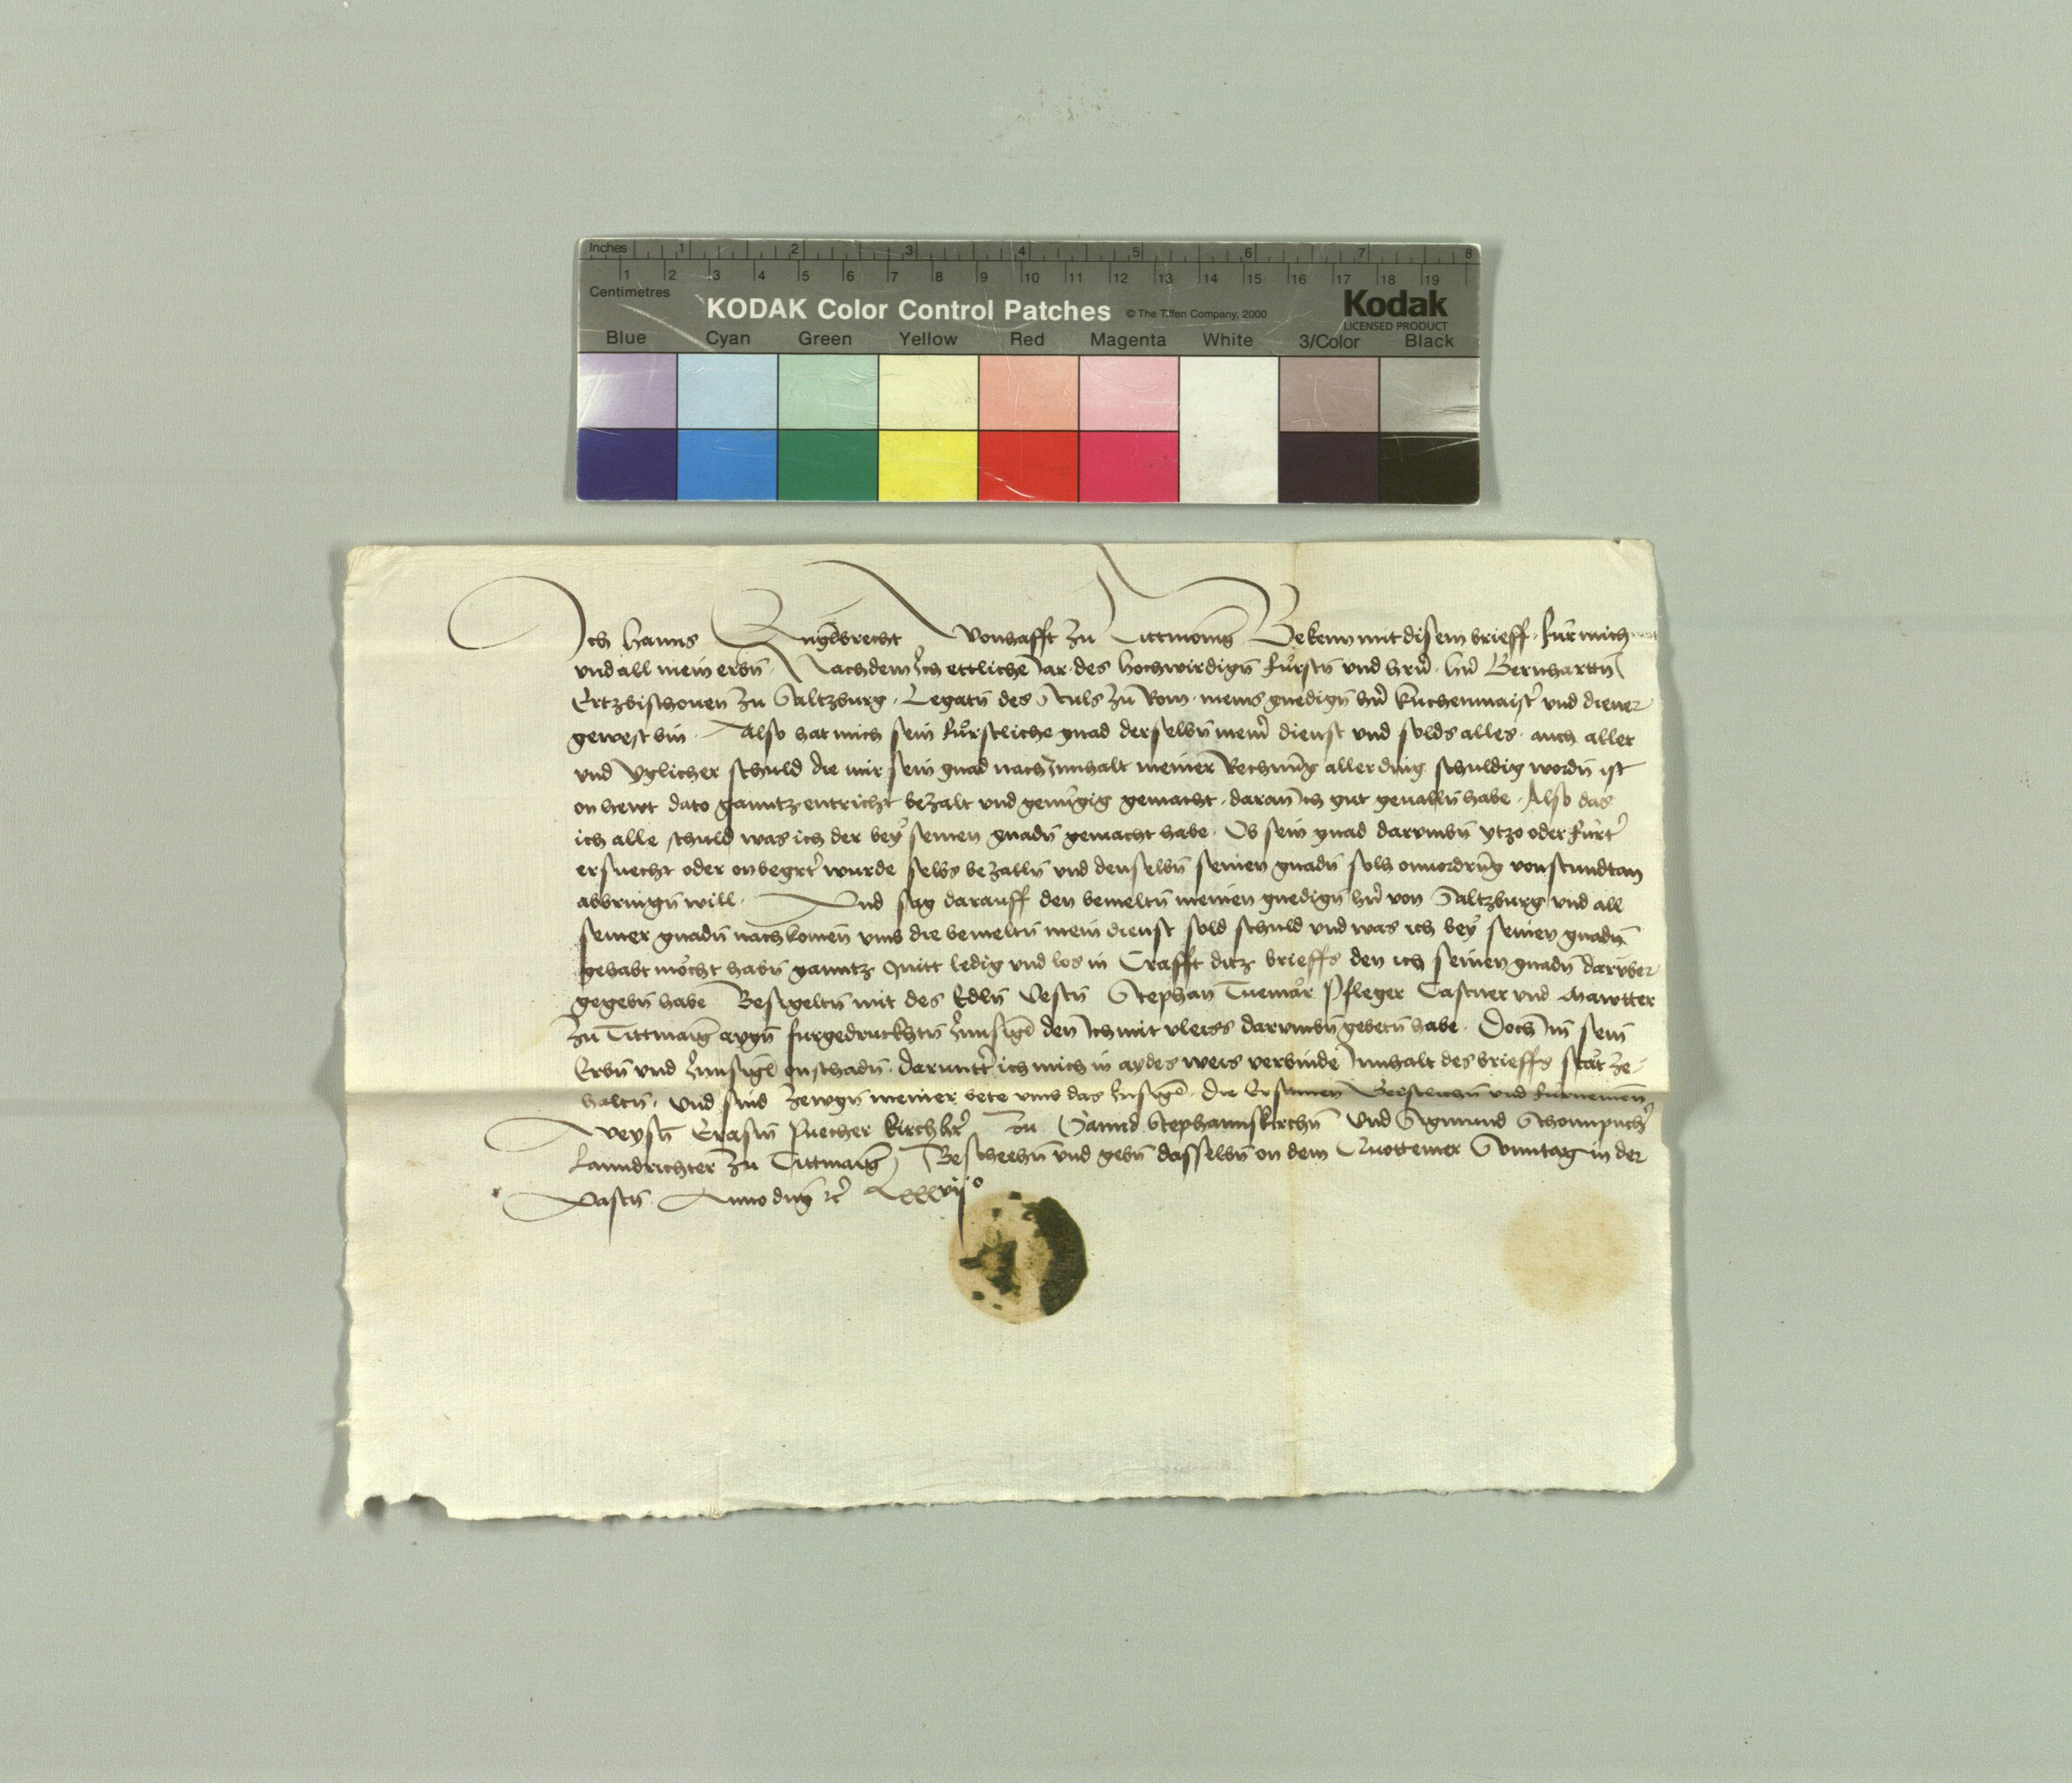 Inches 1 2 3 4 5 6 7 8
1 2 3 4 5 6 7 8 9 10 11 12 13 14 15 16 17 18 19
Centimetres
KODAK Color Control Patches © The Tiffen Company, 2000 Kodak
LICENSED PRODUCT
Blue Cyan Green Yellow Red Magenta White 3/Color Black
Ich Hanns Englbrecht wonhafft zu Tittmoning Bekenn mit disem brieff fur mich
und all mein erbn̄ Nachdem Ich ettliche Jar des hochwirdign̄ fürstn̄ vnd hrn̄ hn̄ Bernhartn̄
Ertzbischouen zu Saltzburg Legatn̄ des Stuls zu Rom meins gnedign̄ hn̄ kuchenmaister vnd diener
gewest bin Also hat mich sein fürstliche gnad derselbn̄ meiner dienst vnd solds alles auch aller
vnd yglicher schuld die mir sein gnad nach Innhalt meiner Rechnūg allerding schuldig wordn̄ ist
on hewt dato ganntz entricht bezalt vnd genügig gemacht daran Ich gut geualln̄ habe Also das
ich alle schuld was ich der bey seinen gnadn̄ gemacht habe Ob sein gnad darumbn̄ ytzo oder fürter
ersuecht oder onbegert wurde selbs bezalln̄ vnd denselbn̄ seinen gnadn̄ solh onuordrūg von stundtan
abbringn̄ will Und sag darauff den bemeltn̄ meinen gnedign̄ hn̄ von Saltzburg vnd all
seiner gnadn̄ nachkomen̄ vmb die bemeltn̄ mein dienst sold schuld vnd was ich bey seinen gnadn̄
gehabt möcht habn̄ ganntz quitt ledig vnd los in Crafft ditz brieffs den ich seinen gnadn̄ darüber
gegebn̄ habe Besigeltn̄ mit des Edln̄ Vestn̄ Stephan Pfleger Castner vnd Mawtter
zu Tittmaīg aygn̄ furgedrucktn̄ Innsigl̄ den Ich mit vleiss darumbn̄ gebetn̄ habe Doch Im sein
Erbn̄ vnd Innsigl̄ onschadn̄ darunter ich mich in aydes weis verbinde Innhalt des brieffs stät ze
haltn̄ Und sind zewgn̄ meiner bete vmb das Insigl̄ die Ersamen Geistlichn̄ vnd furnemen̄
Weysn̄ Erasm̄ Puecher kirchher zu Sannd Stephannskirchn̄ Und Sigmund
Lanndrichter zu Tittmaīg Bescheehn̄ vnd gebn̄ dasselbn̄ on dem Quottemer Sunntag in der
Vastn̄ Anno dn̄i rc̄ Lxxxvijᵒ